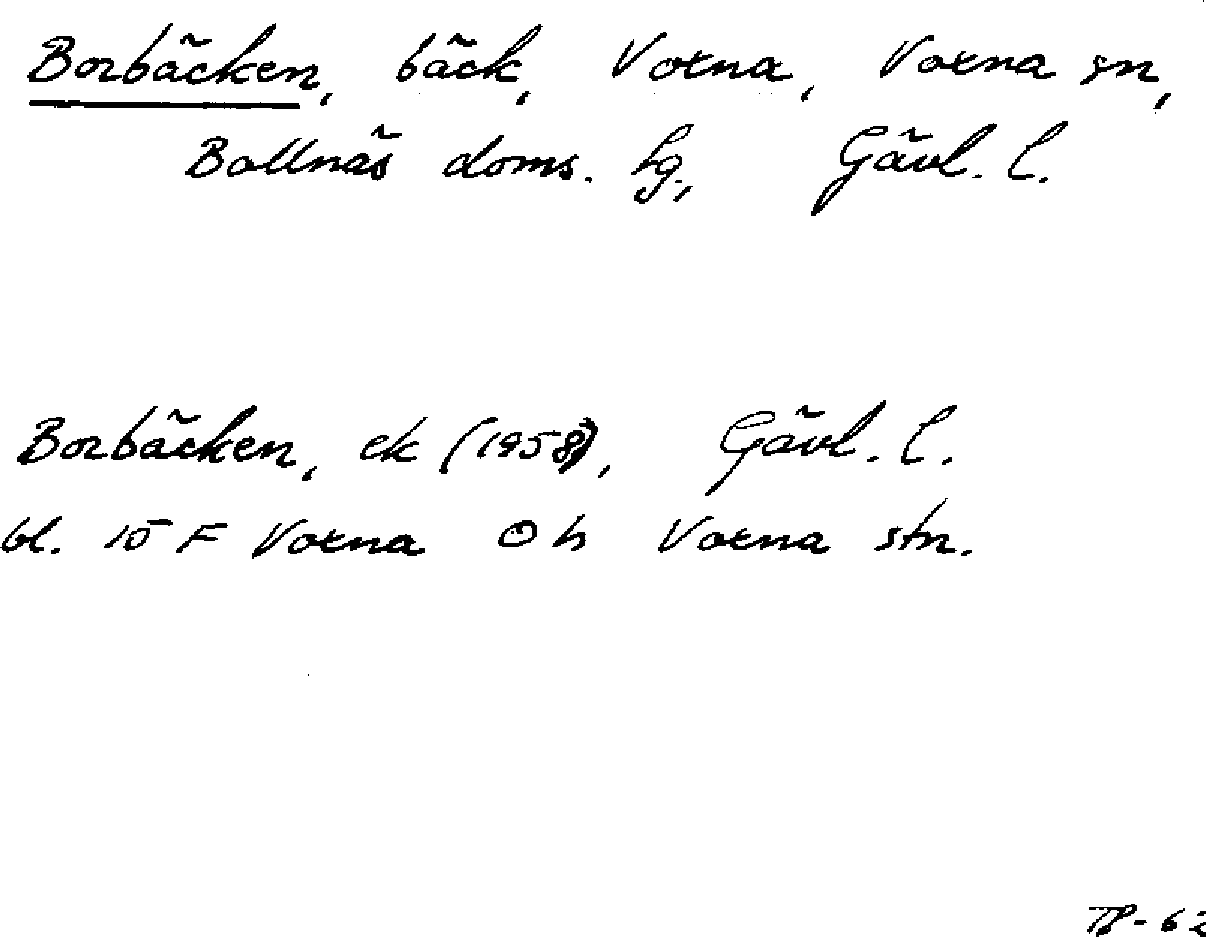 Borbäcken, bäck, Voxna, Voxna sn,
Bollnäs doms. hg., Gävl. l.
Borbäcken, ek (1958), Gävl. l.
bl. 15 F Voxna 0 h Voxna stn.
TP-62